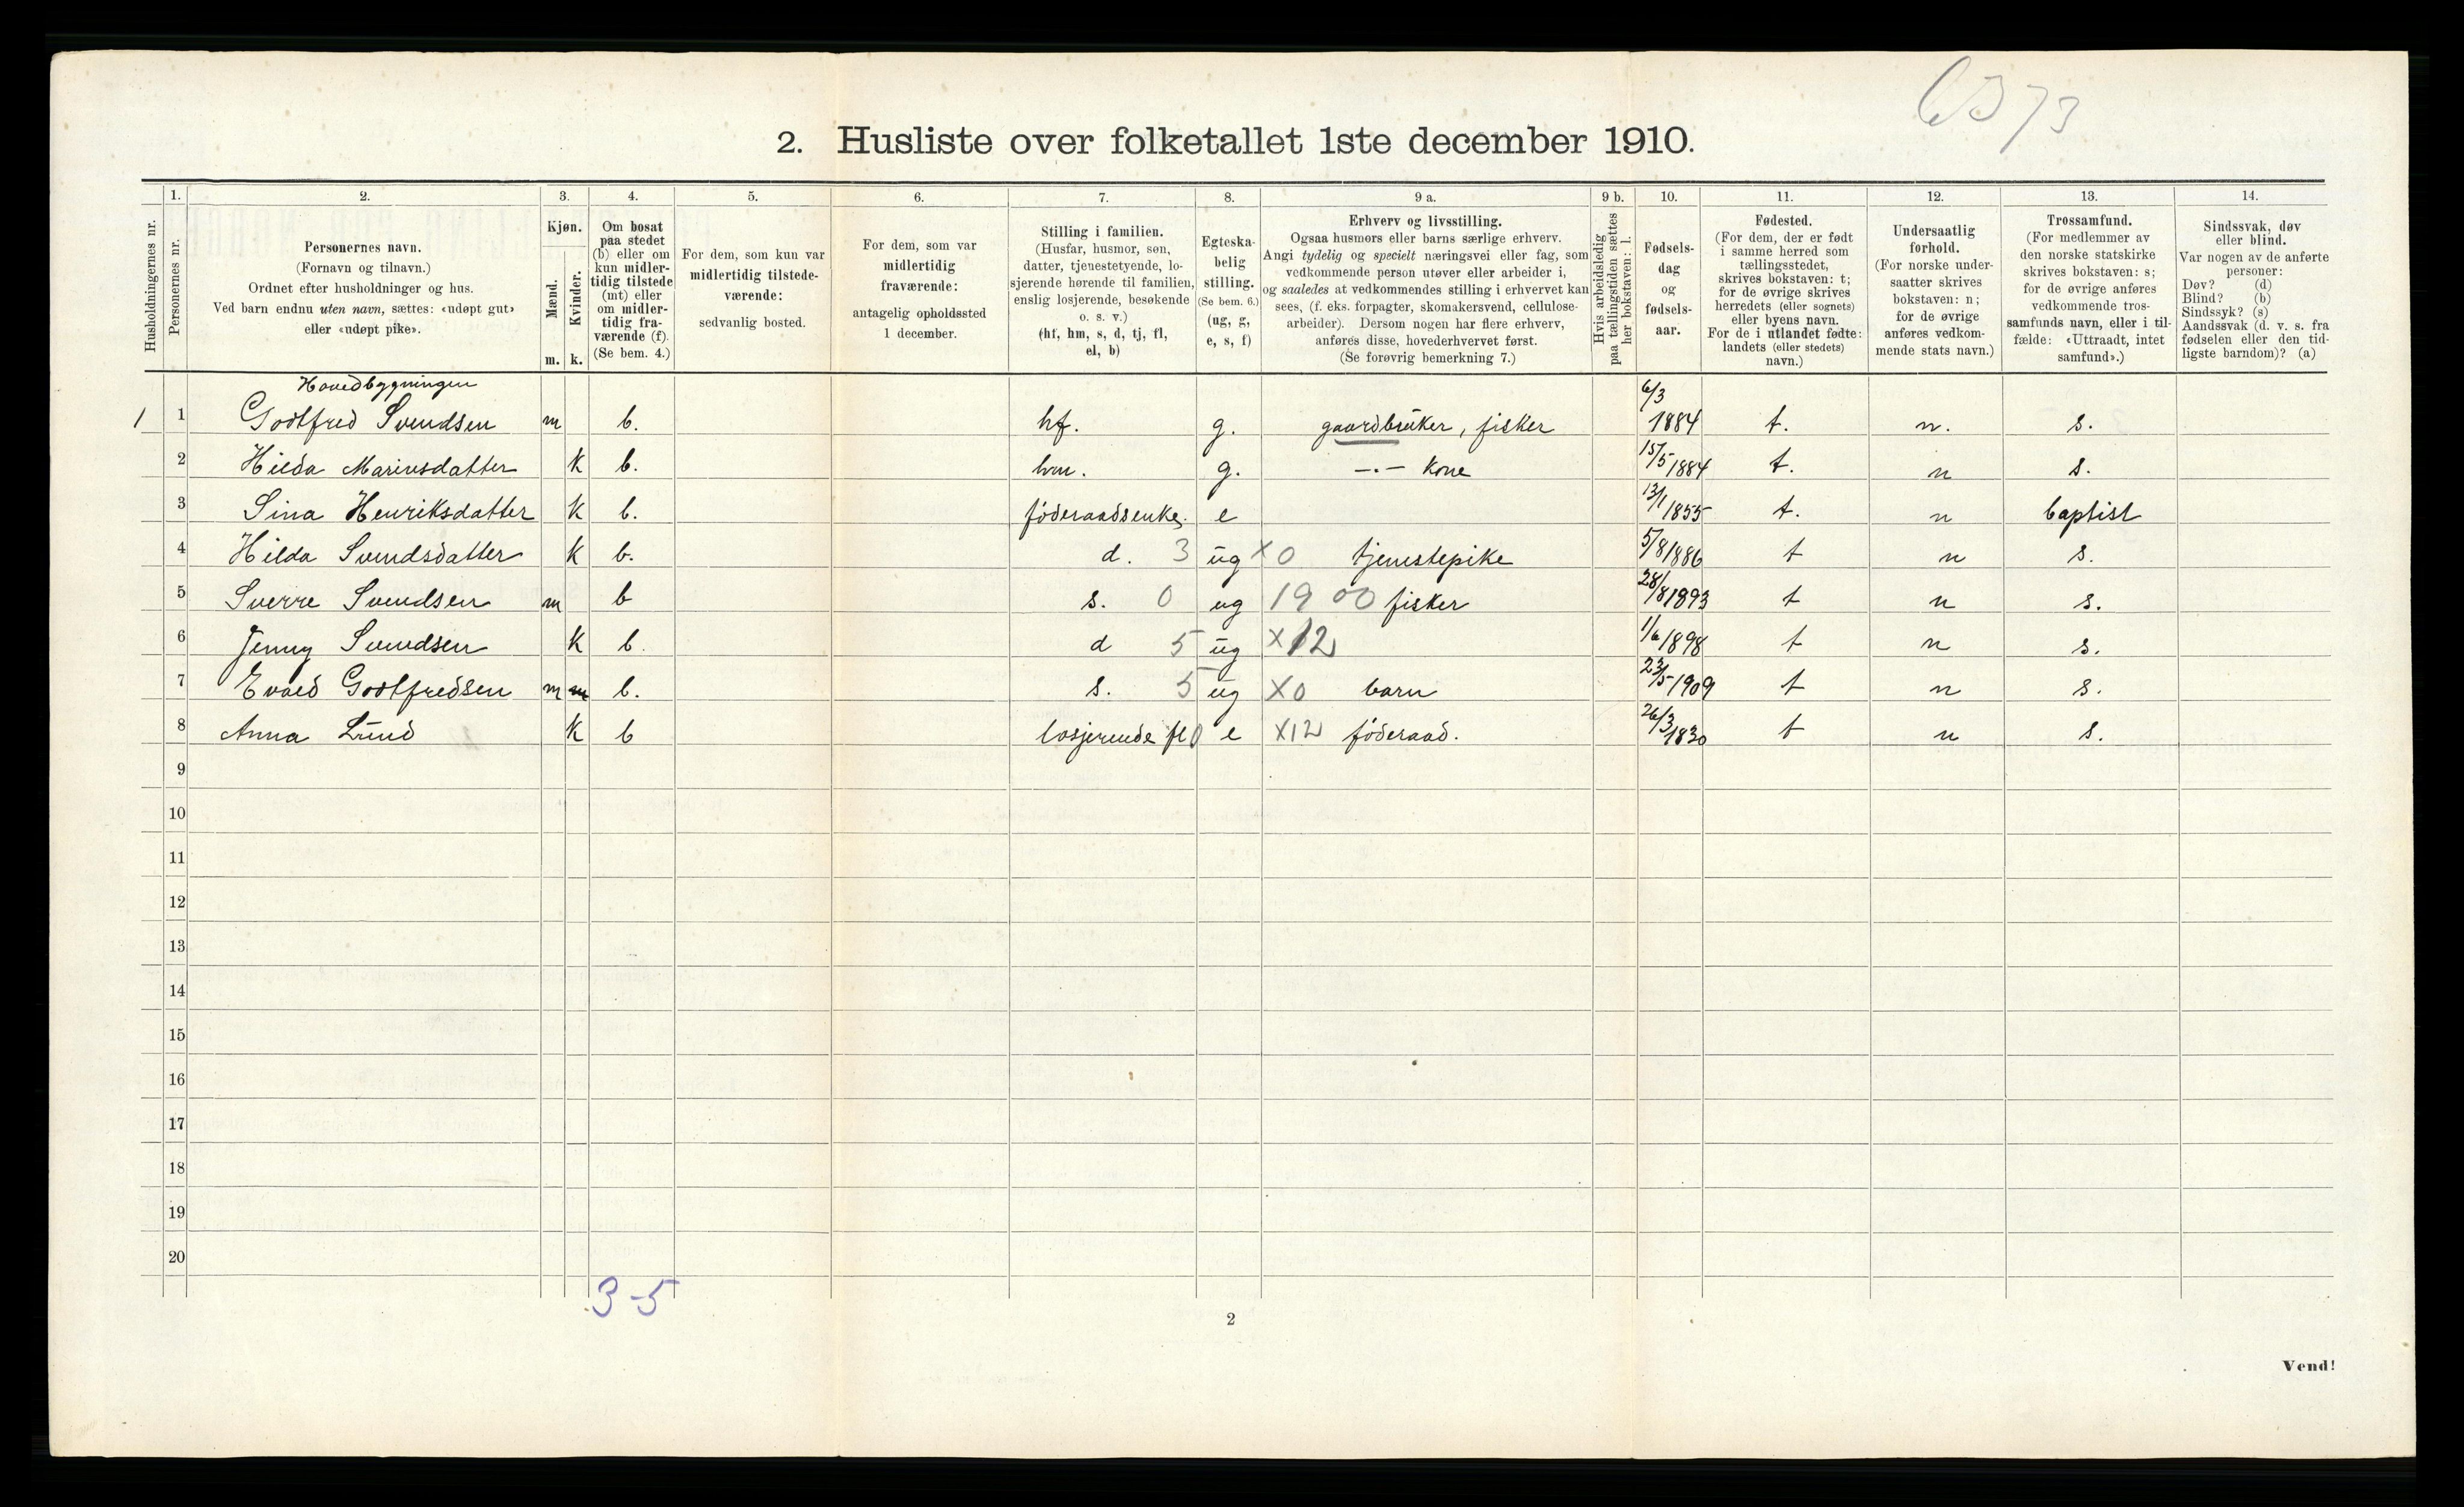 6373
2. Husliste over folketallet 1ste december 1910.
Husholdningernes nr.
1.
Personernes nr.
2.
Personernes navn.
(Fornavn og tilnavn.)
Ordnet efter husholdninger og hus.
Ved barn endnu uten navn, sættes: «udøpt gut»
eller «udøpt pike».
3.
Kjøn.
Mænd.
Kvinder.
m. k.
4.
Om bosat
paa stedet
(b) eller om
kun midler-
tidig tilstede
(mt) eller
om midler-
tidig fra-
værende (f).
(Se bem. 4.)
5.
For dem, som kun var
midlertidig tilstede-
værende:
sedvanlig bosted.
6.
For dem, som var
midlertidig
fraværende:
antagelig opholdssted
1 december.
7.
Stilling i familien.
(Husfar, husmor, søn,
datter, tjenestetyende, lo-
sjerende hørende til familien,
enslig losjerende, besøkende
o. s. v.)
(hf, hm, s, d, tj, fl,
el, b)
8.
Egteska-
belig
stilling.
(Se bem. 6.)
(ug, g,
e, s, f)
9 a.
Erhverv og livsstilling.
Ogsaa husmors eller barns særlige erhverv.
Angi tydelig og specielt næringsvei eller fag, som
vedkommende person utøver eller arbeider i,
og saaledes at vedkommendes stilling i erhvervet kan
sees, (f. eks. forpagter, skomakersvend, cellulose-
arbeider). Dersom nogen har flere erhverv,
anføres disse, hovederhvervet først.
(Se forøvrig bemerkning 7.)
9 b.
Hvis arbeidsledig
paa tællingstiden sættes
her bokstaven: l.
10.
Fødsels-
dag
og
fødsels-
aar.
11.
Fødested.
(For dem, der er født
i samme herred som
tællingsstedet,
skrives bokstaven: t;
for de øvrige skrives
herredets (eller sognets)
eller byens navn.
For de i utlandet fødte:
landets (eller stedets)
navn.)
12.
Undersaatlig
forhold.
(For norske under-
saatter skrives
bokstaven: n;
for de øvrige
anføres vedkom-
mende stats navn.)
13.
Trossamfund.
(For medlemmer av
den norske statskirke
skrives bokstaven: s;
for de øvrige anføres
vedkommende tros-
samfunds navn, eller i til-
fælde: «Uttraadt, intet
samfund».)
14.
Sindssvak, døv
eller blind.
Var nogen av de anførte
personer:
Døv? (d)
Blind? (b)
Sindssyk? (s)
Aandssvak (d. v. s. fra
fødselen eller den tid-
ligste barndom)? (a)
Hovedbygningen
1 1 Godtfred Svendsen m b. hf. g. gaardbruker, fisker 6/3 1884 t. n. s.
2 Hilda Mariusdatter k b. hm. g. -"- kone 15/5 1884 t. n s.
3 Sina Henriksdatter k b. føderaadsenke. e 13/1 1855 t. n baptist
4 Hilda Svendsdatter k b. d. 3 ug X0 tjenestepike 5/8 1886 t n s.
5 Sverre Svendsen m b s. 0 ug 1900 fisker 28/8 1893 t n s.
6 Jenny Svendsen k b. d 5 ug X12 1/6 1898 t n s.
7 Evald Godtfredsen m m b. s. 5 ug X0 barn 23/5 1909 t n s.
8 Anna Lund k b losjerende fl 0 e X12 føderaad. 26/3 1830 t n s.
9
10
11
12
13
14
15
16
17
18
19
20
3-5
2
Vend!